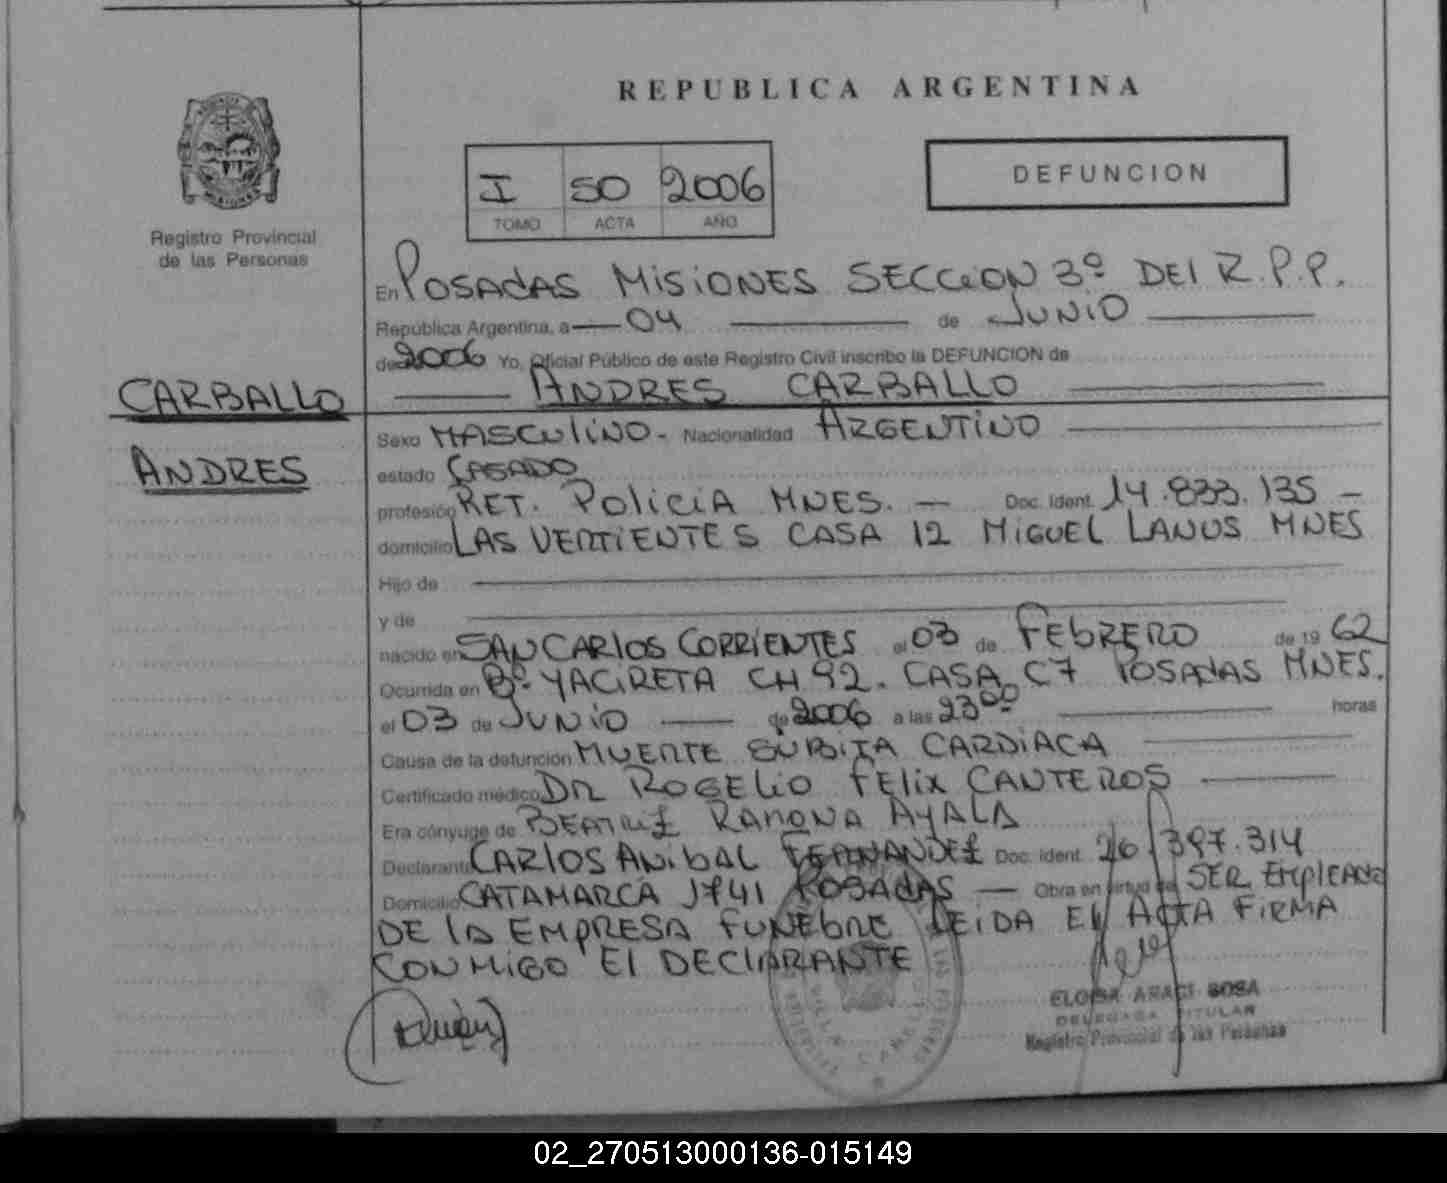 REPUBLICA ARGENTINA
I 50 2006
TOMO ACTA AÑO
DEFUNCION
MISIONES
Registro Provincial
de las Personas
CARBALLO
ANDRES
En POSADAS MISIONES SECCION 3º DEL R.P.P.
República Argentina, a 04 de JUNIO
de 2006 Yo, Oficial Público de este Registro Civil inscribo la DEFUNCION de
ANDRES CARBALLO
Sexo MASCULINO - Nacionalidad ARGENTINO
estado CASADO
profesión RET. POLICIA MNES. — Doc. Ident. 14.833.135 —
domicilio LAS VERTIENTES CASA 12 MIGUEL LANUS MNES
Hijo de
y de
nacido en SAN CARLOS CORRIENTES el 03 de FEBRERO de 19 62
Ocurrida en Bº YACIRETA CH 92. CASA C7 POSADAS MNES.
el 03 de JUNIO de 2006 a las 23⁰⁰ horas
Causa de la defunción MUERTE SUBITA CARDIACA
Certificado médico DR ROGELIO FELIX CANTEROS
Era cónyuge de BEATRIZ RAMONA AYALA
Declarante CARLOS ANIBAL FERNANDEZ Doc. ident. 26.397.314
Domicilio CATAMARCA 1741 POSADAS — Obra en virtud de SER EMPLEADO
DE LA EMPRESA FUNEBRE LEIDA EL ACTA FIRMA
CONMIGO EL DECLARANTE
ELOISA ARACI SOSA
DELEGADA TITULAR
Registro Provincial de las Personas
02_270513000136-015149